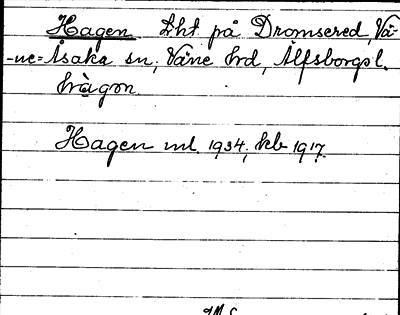 Hagen Lht på Dromsered, Vä-
-ne-Åsaka sn, Väne hrd, Älfsborgs l.
hàgon
Hagen ml. 1934, kb 1917.